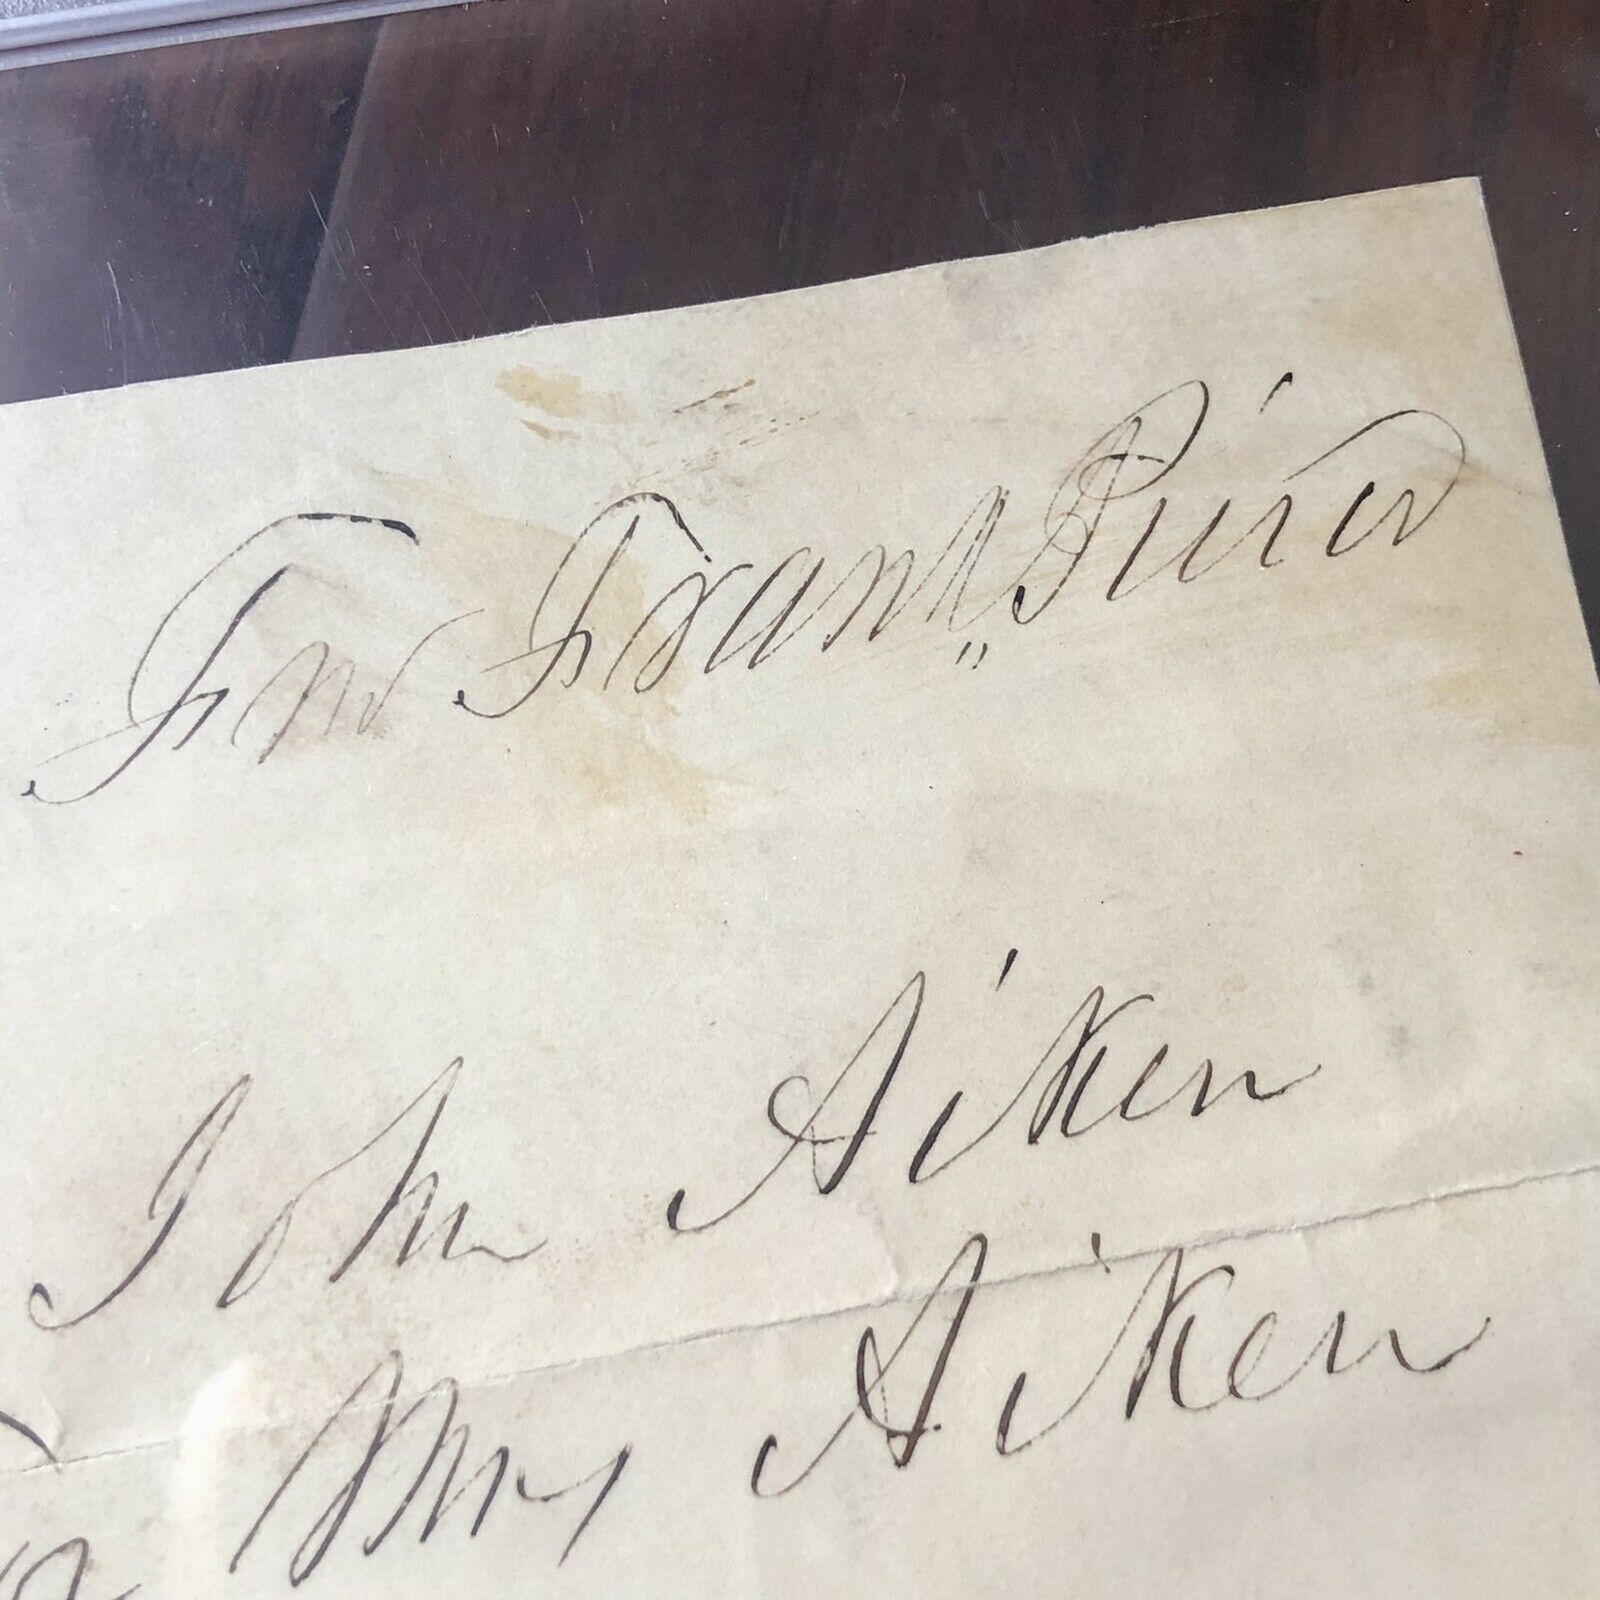 Frank Pierce
John Aiken
Mrs Aiken